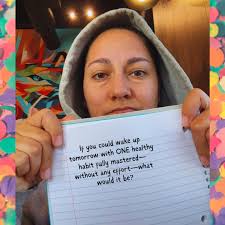 If you could wake up
tomorrow with ONE healthy
habit fully mastered—
without any effort—what
would it be?